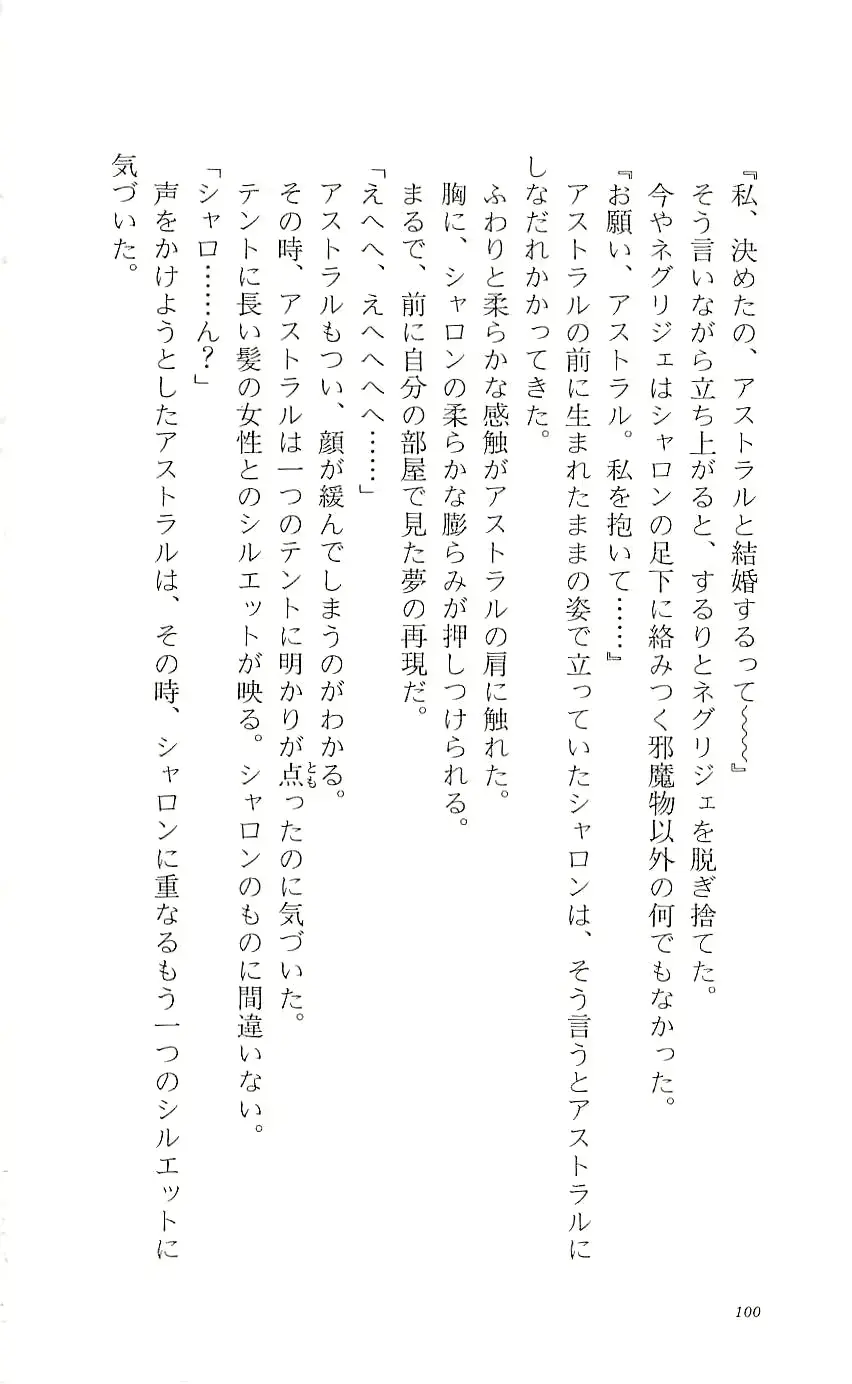 『私、決めたの、アストラルと結婚するって〜〜〜』
そう言いながら立ち上がると、するりとネグリジェを脱ぎ捨てた。
今やネグリジェはシャロンの足下に絡みつく邪魔物以外の何でもなかった。
『お願い、アストラル。私を抱いて……』
アストラルの前に生まれたままの姿で立っていたシャロンは、そう言うとアストラルに
しなだれかかってきた。
ふわりと柔らかな感触がアストラルの肩に触れた。
胸に、シャロンの柔らかな膨らみが押しつけられる。
まるで、前に自分の部屋で見た夢の再現だ。
「えへへ、えへへへへ……」
アストラルもつい、顔が緩んでしまうのがわかる。
その時、アストラルは一つのテントに明かりが点ったのに気づいた。
とも
テントに長い髪の女性とのシルエットが映る。シャロンのものに間違いない。
「シャロ……ん？」
声をかけようとしたアストラルは、その時、シャロンに重なるもう一つのシルエットに
気づいた。
100